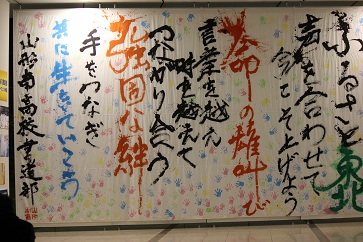 ふるさと東北
声を合わせて
今こそ上げよう
命の雄叫び
言葉を越え
時を越えて
つながり合おう
強固な絆
手をつなぎ
共に生きていこう
山形南高校書道部